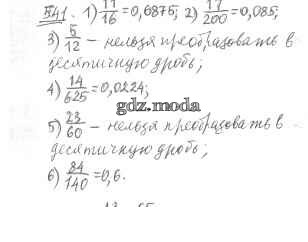 541. 1) 11/16 = 0,6875; 2) 17/200 = 0,085;
3) 5/12 – нельзя преобразовать в
десятичную дробь;
4) 14/625 = 0,0224;
gdz.moda
5) 23/60 – нельзя преобразовать в
десятичную дробь;
6) 84/140 = 0,6.